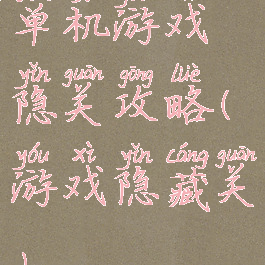 单机游戏
yǐn guān gōng lüè
隐关攻略(
yóu xì yǐn cáng guān
游戏隐藏关
)